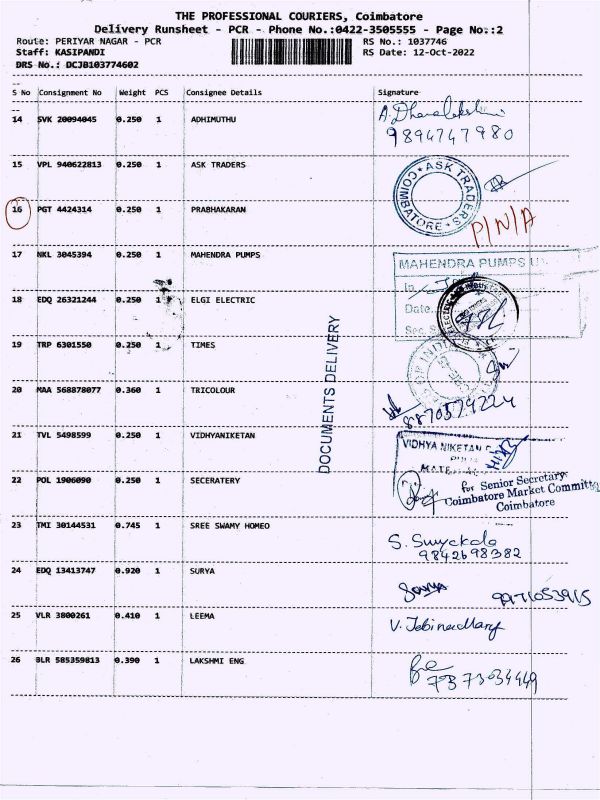 THE PROFESSIONAL COURIERS, Coimbatore
Delivery Runsheet - PCR - Phone No.:0422-3505555 - Page No.:2
Route: PERIYAR NAGAR - PCR RS No.: 1037746
Staff: KASIPANDI RS Date: 12-Oct-2022
DRS No.: DCJB103774602
S No Consignment No Weight PCS Consignee Details Signature
14 SVK 20094045 0.250 1 ADHIMUTHU
9894747980
15 VPL 940622813 0.250 1 ASK TRADERS
ASK TRADERS COIMBATORE
16 PGT 4424314 0.250 1 PRABHAKARAN
P/N/A
17 NKL 3045394 0.250 1 MAHENDRA PUMPS
MAHENDRA PUMPS
In
Date.
Sec.
18 EDQ 26321244 0.250 1 ELGI ELECTRIC
19 TRP 6301550 0.250 1 TIMES
DOCUMENTS DELIVERY
20 MAA 568878077 0.360 1 TRICOLOUR
8870574224
21 TVL 5498599 0.250 1 VIDHYANIKETAN
VIDHYA NIKETAN
22 POL 1906090 0.250 1 SECERATERY
for Senior Secretary
Coimbatore Market Committee
Coimbatore
23 TMI 30144531 0.745 1 SREE SWAMY HOMEO
9842698382
24 EDQ 13413747 0.920 1 SURYA
Surya
25 VLR 3800261 0.410 1 LEEMA
26 BLR 585359813 0.390 1 LAKSHMI ENG
7373034449